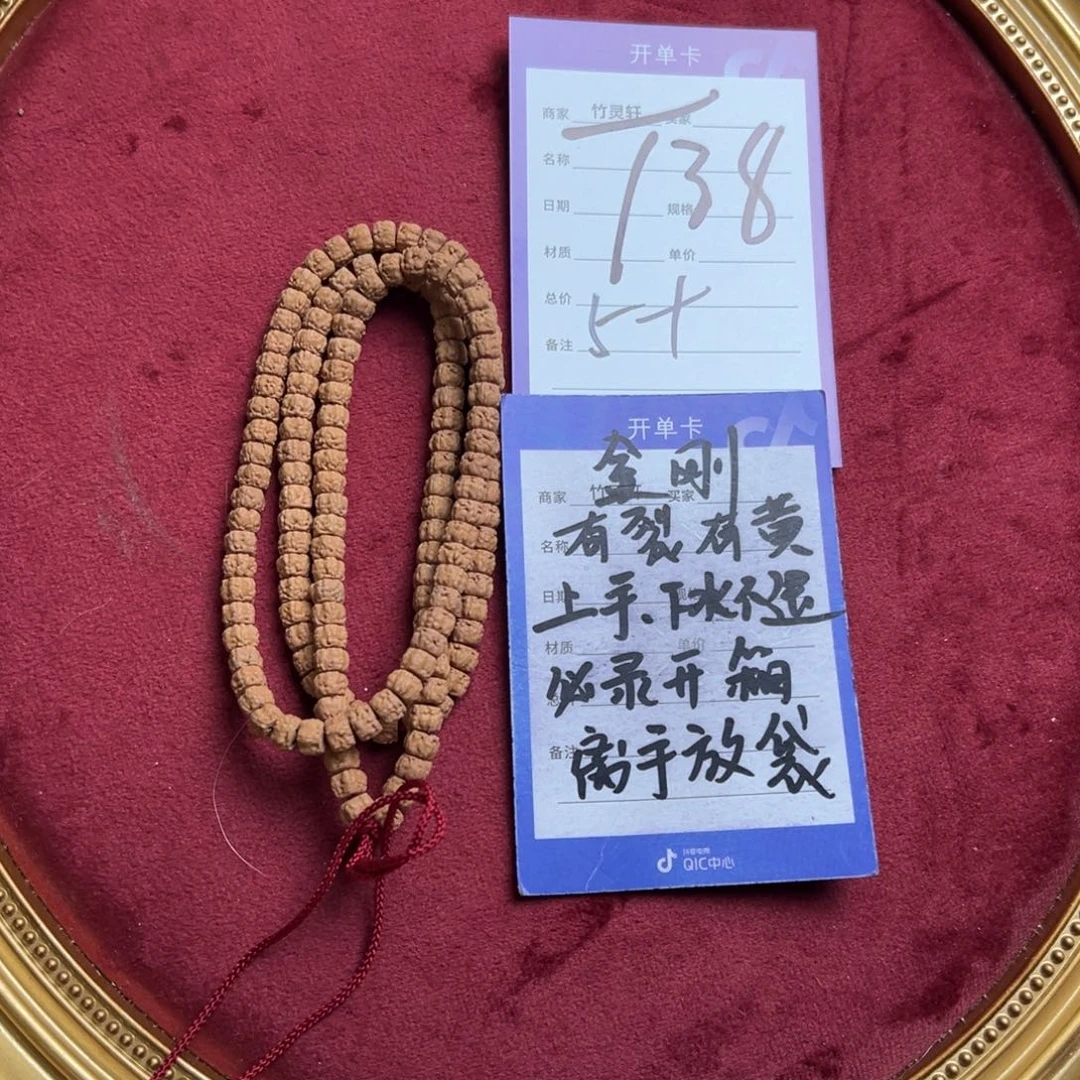 开单卡
商家 竹灵轩 买家
138
名称
日期 规格
材质 单价
总价
5十
备注
开单卡
金刚
商家 买家
有裂有黄
名称
上手、下水不退
日期
材质 单价
必录开箱
备注
离手放袋
抖音电商
QIC中心